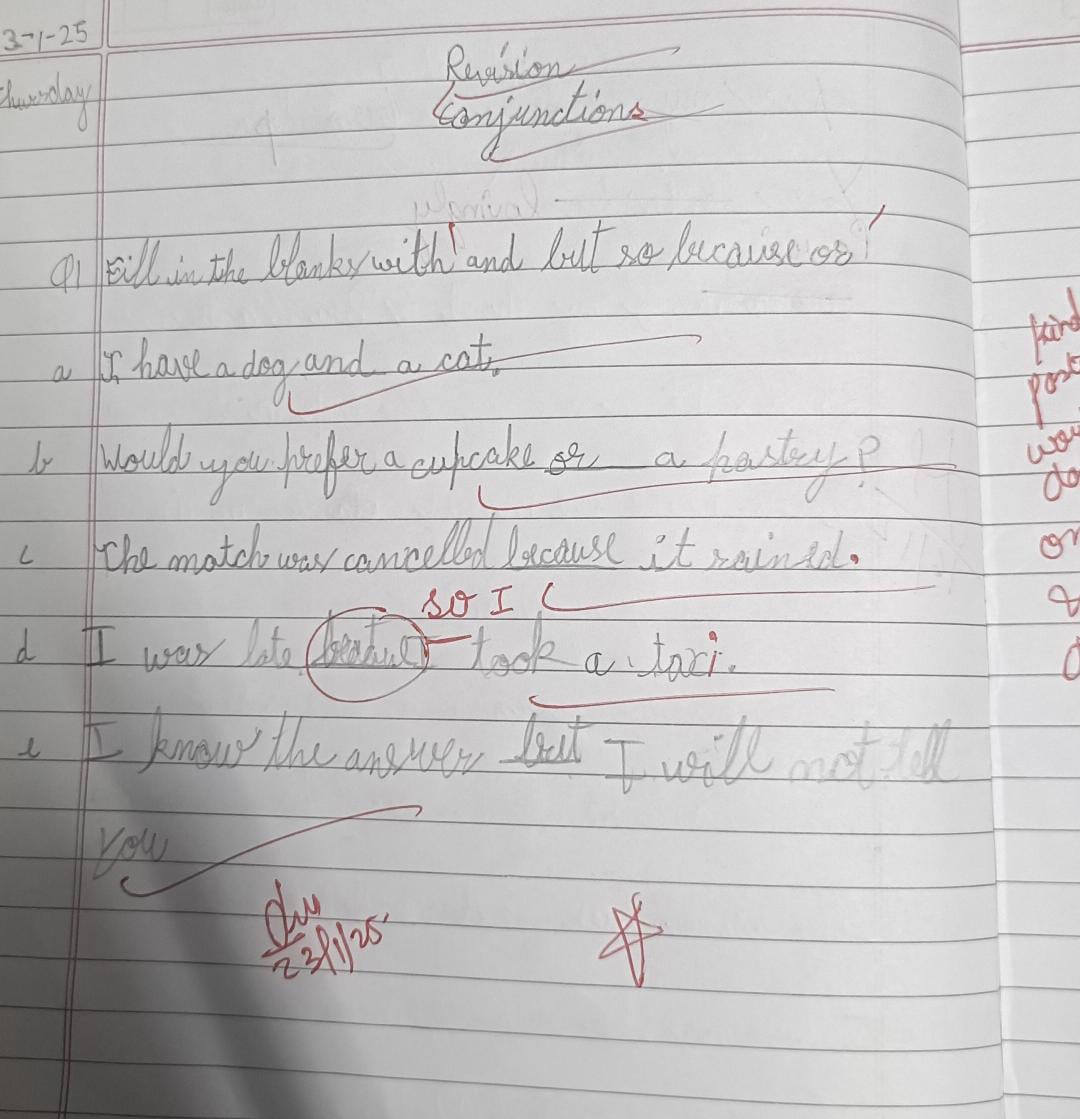 3-1-25
Thursday
Revision
Conjunctions
Q1 Fill in the blanks with 'and but so because or'
a I have a dog and a cat.
b Would you prefer a cupcake or a pastry?
c The match was cancelled because it rained.
so I
d I was late took a taxi.
e I know the answer but I will not tell
you
23/1/25